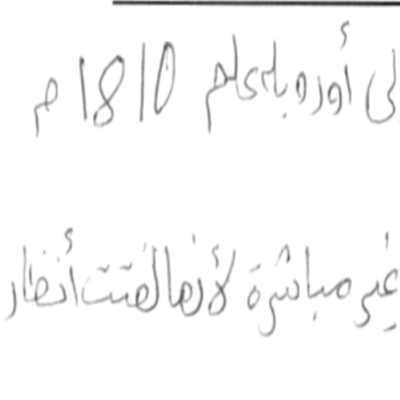 لى أوروبا عام 1810 م
غير مباشرة لأنها لفتت أنظار